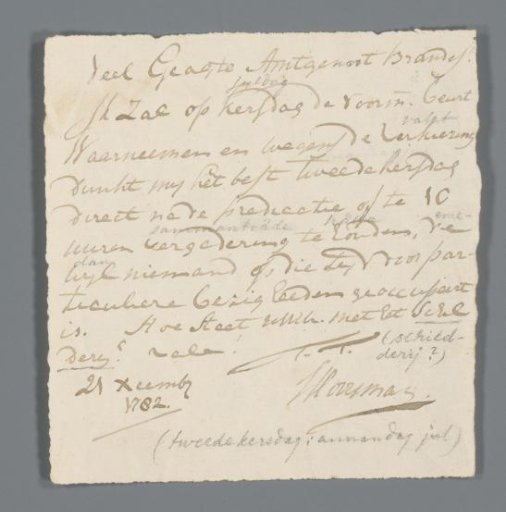 Veel Geagte Amtgenoot Brandes.
juldag
Ik Zal op kersdag de voorm. beurt
valet
Waarneemen en wegens de verkiezing
Dunkt my het best tweede kersdag
direct na de predicatie of te 10
sammanträde
uuren vergadering te houden,
dan
lyk niemand op die tyd voor par-
ticuliere bezigheeden geoccupeert
is. Hoe staet met het Schil
dery? vale!
(schild-
derij?)
21 Xcemb.
1782.
(tweede kersdag: annandag jul)